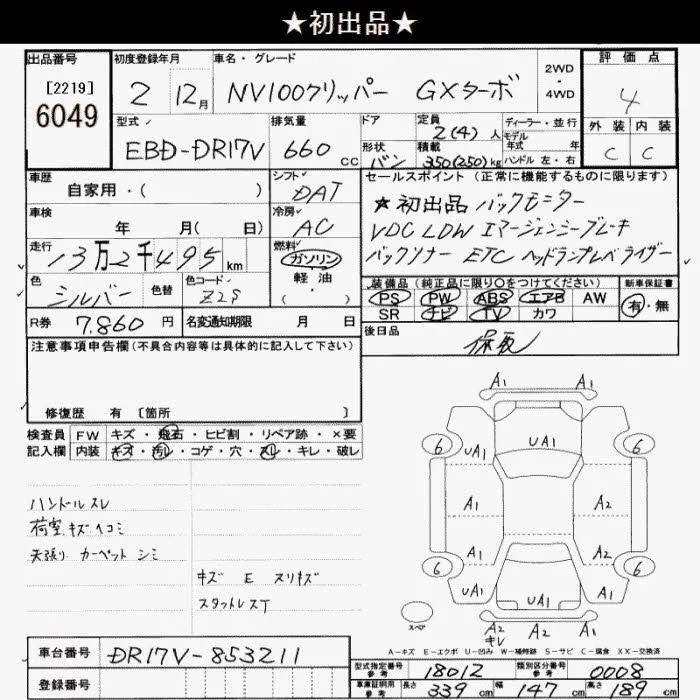 ★初出品★
出品番号
[2219]
6049
初度登録年月
2 12月
車名・グレード
NV100クリッパー GXターボ
2WD
・
4WD
評価点
4
外装 内装
C C
型式
EBD-DR17V
排気量
660 cc
ドア
形状
バン
定員
2(4) 人
積載
350(250)kg
ディーラー・並行
モデル
年式 年
ハンドル 左・右
車歴
自家用・( )
シフト
DAT
車検
年 月( 日)
冷房
AC
走行
13万2千495 km
燃料
ガソリン
軽油
( )
色
シルバー
色替
色コード
Z2S
R券
7,860 円
名変通知期限 月 日
セールスポイント (正常に機能するものに限ります)
★初出品 バックモニター
VDC LDW エマージェンシーブレーキ
バックソナー ETC ヘッドランプレベライザー
装備品 (純正品に限り○をつけてください)
PS PW ABS エアB AW
SR ナビ TV カワ
新車保証書
有・無
後日品
保取
注意事項申告欄(不具合内容等は具体的に記入して下さい)
修復歴 有 〔箇所 〕
検査員
記入欄
FW キズ・飛石・ヒビ割・リペア跡・×要
内装 キズ・汚レ・コゲ・穴・スレ・キレ・破レ
ハンドルスレ
荷室キズヘコミ
天張り カーペット シミ
キズ E スリキズ
スタットレスT
A1 A1
6 UA1 UA1 UA1 6
A1 A2
A1 A2
6 UA1 UA1 A1 6
スペア
A2 A2 A1
キレ
A-キズ E-エクボ U-凹み W-補修跡 S-サビ C-腐食 XX-交換済
車台番号
DR17V-853211
登録番号
型式指定番号
参考
18012
類別区分番号
参考
0008
車庫証明用
参考
長さ 339 cm 幅 147 cm 高さ 189 cm